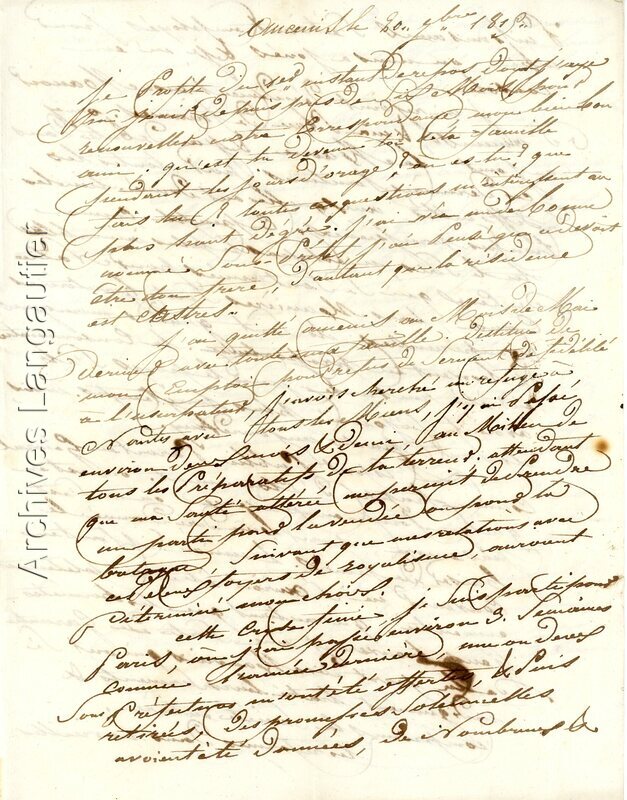 ancenis le 20 9bre 1815.
je Profite du 1er instant de repos, dont j'aye
pour jouir depuis près de six Mois pour
renouveller notre Correspondance mon bien bon
ami. qu'est tu devenu toi et ta famille
pendant les jours d'orage, ou es tu? que
fais tu? toutes ces questions m'intéressent au
plus haut degré. j'ai vu un de Comme
nommé à Sous Préfet j'ai Pensé que ce devoit
être ton frere, d'autant que la résidence
est Castres.
j'ai quitté ancenis au Mois de Mai
dernier avec toute ma famille. Destitué de
mon Emploi pour refus de Serment de fidélité
à l'usurpateur, j'avois cherché un refuge à
Nantes avec tous les Miens, j'y ai Passé
environ deux mois & demi, au Milieu de
tous les Préparatifs de la terreur. attendant
que ma Santé altérée me permit de Prendre
un parti pour la vendée ou pour la
bretagne, Suivant que mes relations avec
ces deux foyers de royalisme, auroient
déterminé mon choix.
cette crise finie je Suis parti pour
Paris, où j'ai passé environ 3. Semaines
comme l'année dernière, une ou deux
Sous Préfectures m'ont été offertes, & Puis
retirées, des promesses Solennelles
avoient été données, de Nombreux &